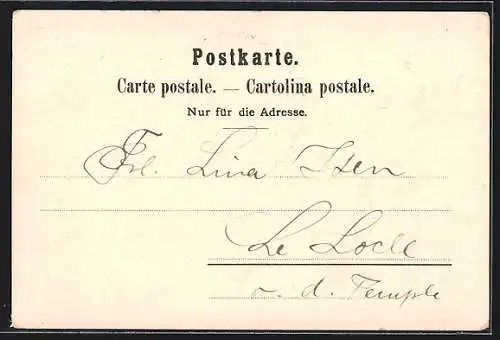 Postkarte.
Carte postale. — Cartolina postale.
Nur für die Adresse.
Frl. Lina Isen
Le Locle
r. d. Temple